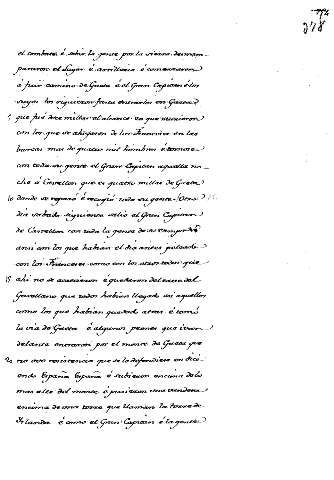 378
el combate é subir la gente por la sierra desman-
pararon el lugar é artilleria é comenzaron
á fuir camino de Gaeta é el Gran Capitan é los
suyos los siguieron fasta entrarlos en Gaeta
que fué diez millas el alcance en que murieron
con los que se ahogaron de los Franceses en las
barcas mas de quatro mil hombres é tornose
con toda su gente el Gran Capitan aquella no-
che á Castellon que es quatro millas de Gaeta
10 donde se reparó é recogió toda su gente. Otro
dia sabado siguiente salió el Gran Capitan
de Castellon con toda la gente de su campo
ansi con los que habian el dia antes peleado
con los Franceses como con los otros todos que
15 ahi no se acaecieron é quedaron del cabo del
Garellano que todos habian llegado asi aquellos
como los que habian quedado atras é tomó
la via de Gaeta é algunos peones que iban
delante entraron por el monte de Gaeta que
20 no ovo resistencia que se lo defendiese en dici-
endo España España é subieron encima de lo
mas alto del monte é pusieron una bandera
encima de una torre que llaman la torre de
Orlando é como el Gran Capitan é la gente